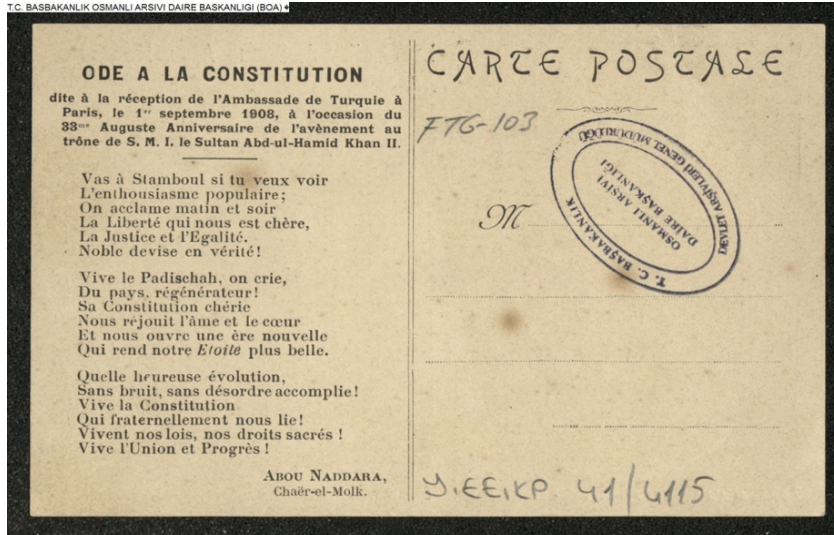 T.C. BASBAKANLIK OSMANLI ARSIVI DAIRE BASKANLIGI (BOA)
ODE A LA CONSTITUTION
dite à la réception de l'Ambassade de Turquie à
Paris, le 1er septembre 1908, à l'occasion du
33me Auguste Anniversaire de l'avènement au
trône de S. M. I. le Sultan Abd-ul-Hamid Khan II.
Vas à Stamboul si tu veux voir
L'enthousiasme populaire;
On acclame matin et soir
La Liberté qui nous est chère,
La Justice et l'Egalité.
Noble devise en vérité!
Vive le Padischah, on crie,
Du pays, régénérateur!
Sa Constitution chérie
Nous réjouit l'âme et le cœur
Et nous ouvre une ère nouvelle
Qui rend notre Etoile plus belle.
Quelle heureuse évolution,
Sans bruit, sans désordre accomplie!
Vive la Constitution
Qui fraternellement nous lie!
Vivent nos lois, nos droits sacrés !
Vive l'Union et Progrès !
ABOU NADDARA,
Chaër-el-Molk.
CARTE POSTALE
FTG-103
M
DEVLET ARŞİVLERİ GENEL MÜDÜRLÜĞÜ
OSMANLI ARŞİVİ
DAİRE BAŞKANLIĞI
T. C. BAŞBAKANLIK
Y.EE.KP 41/4115